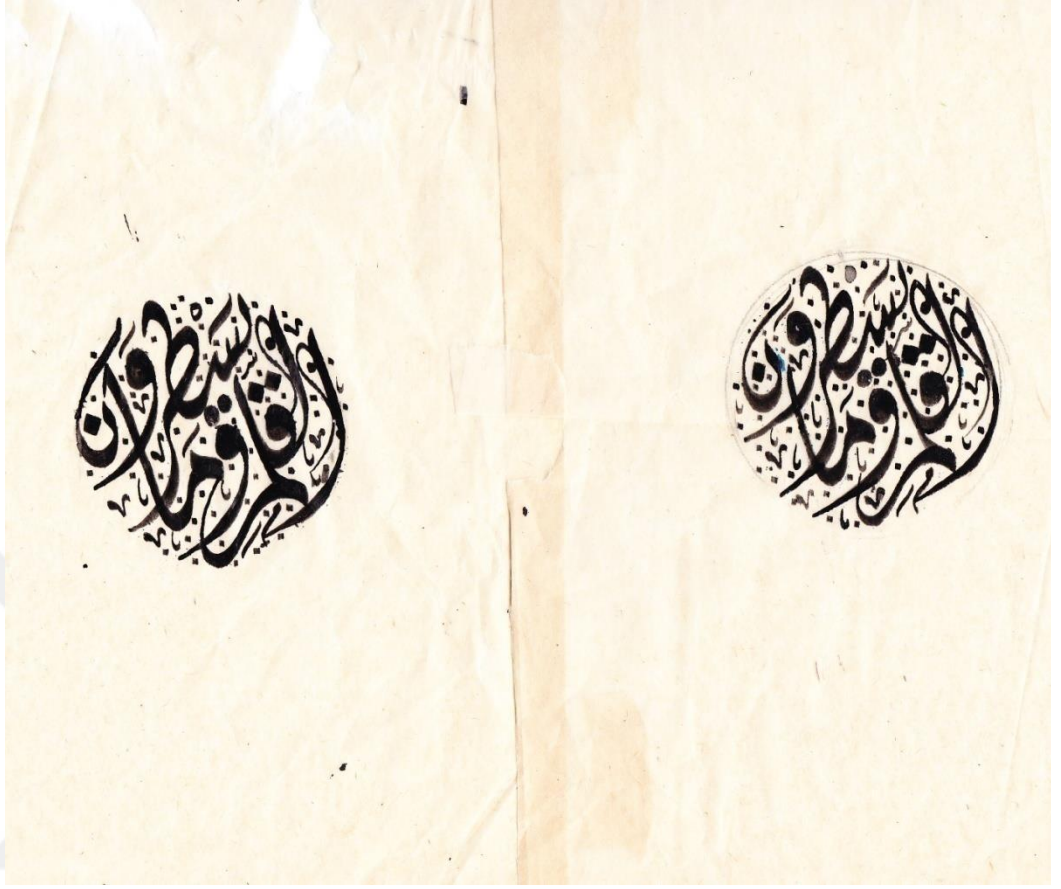 والقلم وما يسطرون
والقلم وما يسطرون